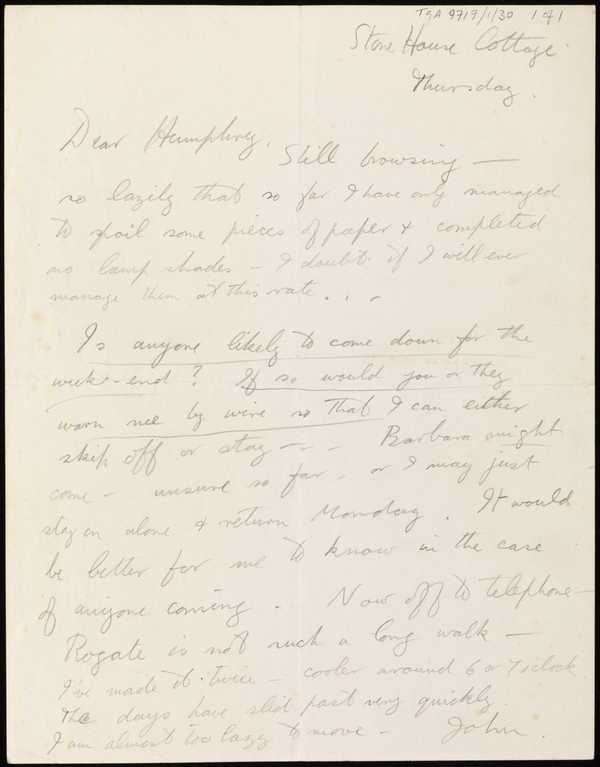 TGA 9717/1/30 1 of 1
Stone House Cottage
Thursday.
Dear Humphrey,
Still browsing —
so lazily that so far I have only managed
to spoil some pieces of paper & completed
no lamp shades — I doubt if I will ever
manage them at this rate . . .
Is anyone likely to come down for the
week-end? If so would you or they
warn me by wire so that I can either
skip off or stay — - Barbara might
come — unsure so far, or I may just
stay on alone & return Monday. It would
be better for me to know in the case
of anyone coming. Now off to telephone —
Rogate is not such a long walk —
I've made it twice — cooler around 6 or 7 o'clock
The days have slid past very quickly
I am almost too lazy to move — John.